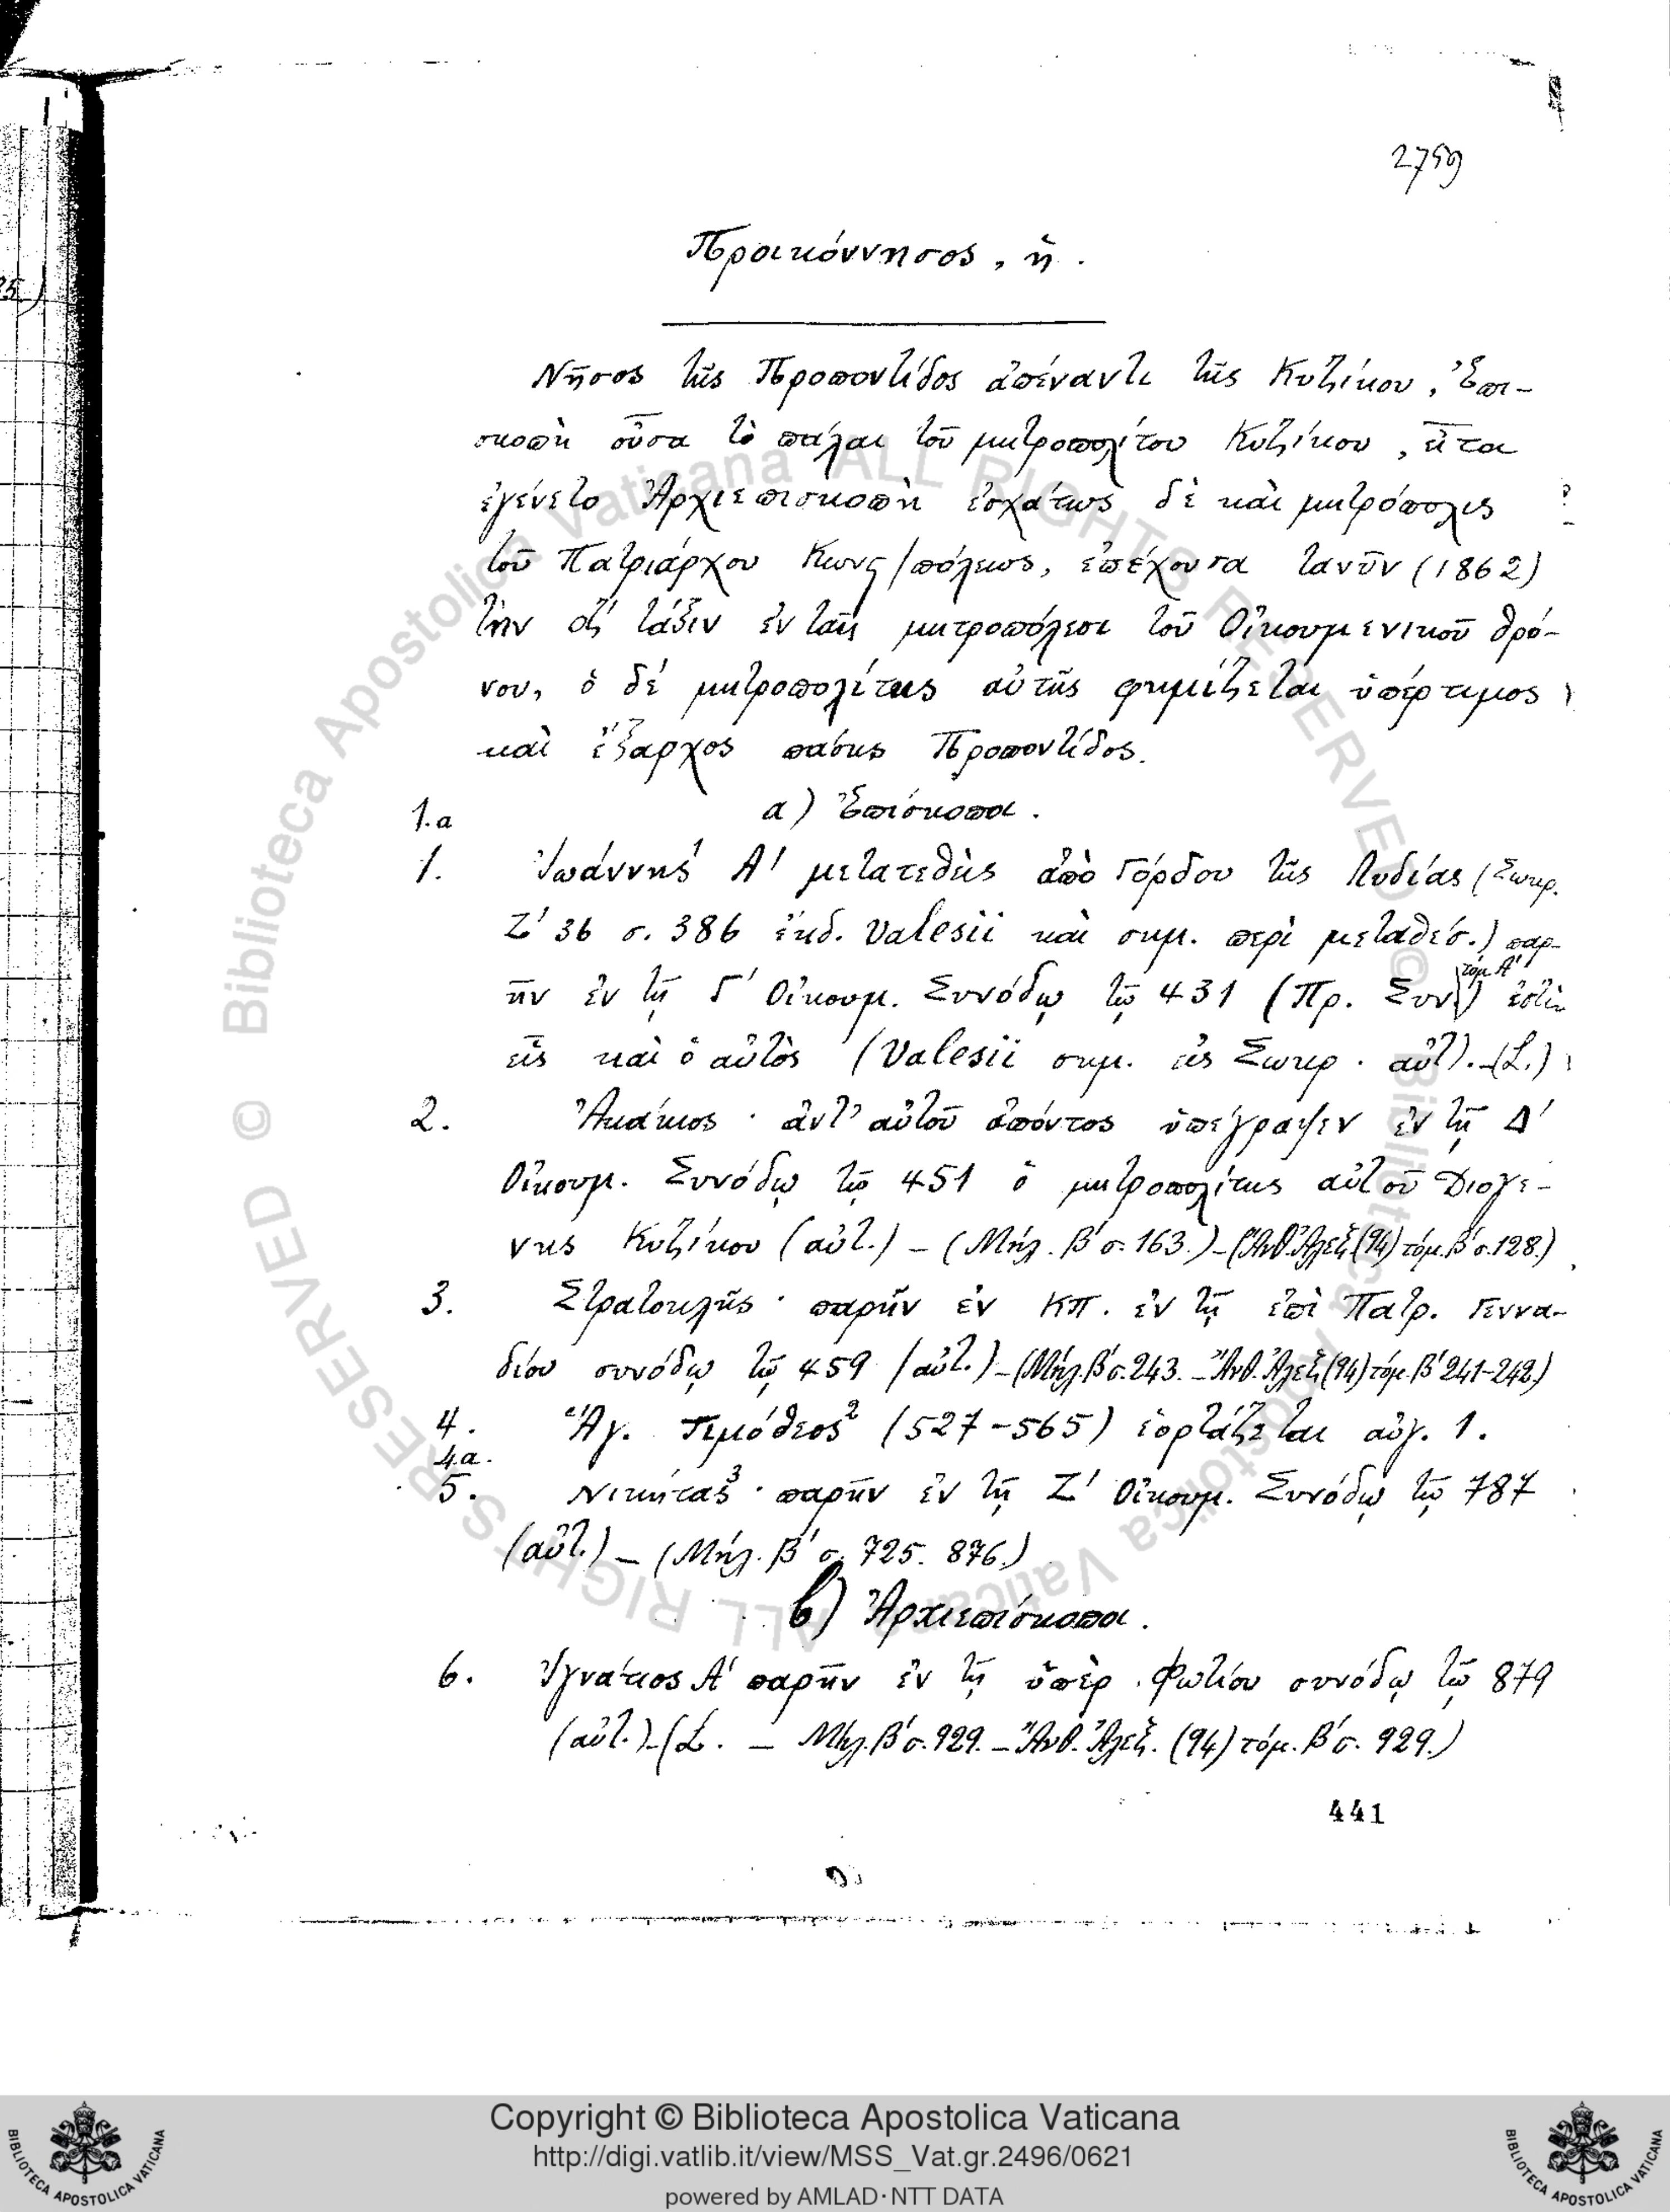 2759
Προικόννησος, ἡ.
Νῆσος τῆς Προποντίδος ἀπέναντι τῆς Κυζίκου, Ἐπι-
σκοπὴ οὖσα τὸ πάλαι τοῦ μητροπολίτου Κυζίκου, εἶτα
ἐγένετο Ἀρχιεπισκοπὴ ἐσχάτως δὲ καὶ μητρόπολις
τοῦ Πατριάρχου Κωνς/πόλεως, ἐπέχουσα τανῦν (1862)
τὴν τάξιν ἐν ταῖς μητροπόλεσι τοῦ Οἰκουμενικοῦ θρό-
νου, ὁ δέ μητροπολίτης αὐτῆς φημίζεται ὑπέρτιμος
καὶ ἔξαρχος πάσης Προποντίδος.
1.a α) Ἐπίσκοποι.
1. Ἰωάννης Α' μετατεθεὶς ἀπὸ Γόρδου τῆς Λυδίας (Σωκρ.
Ζ' 36 σ. 386 ἔκδ. Valesii καὶ σημ. περὶ μεταθέσ.) παρ-
ῆν ἐν τῇ Γ' Οἰκουμ. Συνόδῳ τῷ 431 (Πρ. Συν. τόμ. Α') ἐστὶν
εἷς καὶ ὁ αὐτὸς (Valesii σημ. εἰς Σωκρ. αὐτ). -(L.)
2. Ἀκάκιος· ἀντ' αὐτοῦ ἀπόντος ὑπέγραψεν ἐν τῇ Δ'
Οἰκουμ. Συνόδῳ τῷ 451 ὁ μητροπολίτης αὐτοῦ Διογέ-
νης Κυζίκου (αὐτ.) - (Μήλ. Β' σ. 163.) - (Ἄνθ. Ἀλεξ. (94) τόμ. Β' σ. 128.)
3. Στρατοκλῆς· παρῆν ἐν ΚΠ. ἐν τῇ ἐπὶ Πατρ. Γεννα-
δίου συνόδῳ τῷ 459 (αὐτ.) - (Μήλ. Β' σ. 243. - Ἄνθ. Ἀλεξ. (94) τόμ. Β' 241-242.)
4. Ἅγ. Τιμόθεος² (527-565) ἑορτάζεται αὐγ. 1.
4.a.
5. Νικήτας³· παρῆν ἐν τῇ Ζ' Οἰκουμ. Συνόδῳ τῷ 787
(αὐτ.) - (Μήλ. Β' σ. 725. 876.)
β) Ἀρχιεπίσκοποι.
6. Ἰγνάτιος Α' παρῆν ἐν τῇ ὑπὲρ Φωτίου συνόδῳ τῷ 879
(αὐτ.) - (L. - Μήλ. Β' σ. 929. - Ἄνθ. Ἀλεξ. (94) τόμ. Β' σ. 929.)
441
© Biblioteca Apostolica Vaticana ALL RIGHTS RESERVED
© Biblioteca Apostolica Vaticana ALL RIGHTS RESERVED
Copyright © Biblioteca Apostolica Vaticana
http://digi.vatlib.it/view/MSS_Vat.gr.2496/0621
powered by AMLAD·NTT DATA
BIBLIOTECA APOSTOLICA VATICANA
BIBLIOTECA APOSTOLICA VATICANA